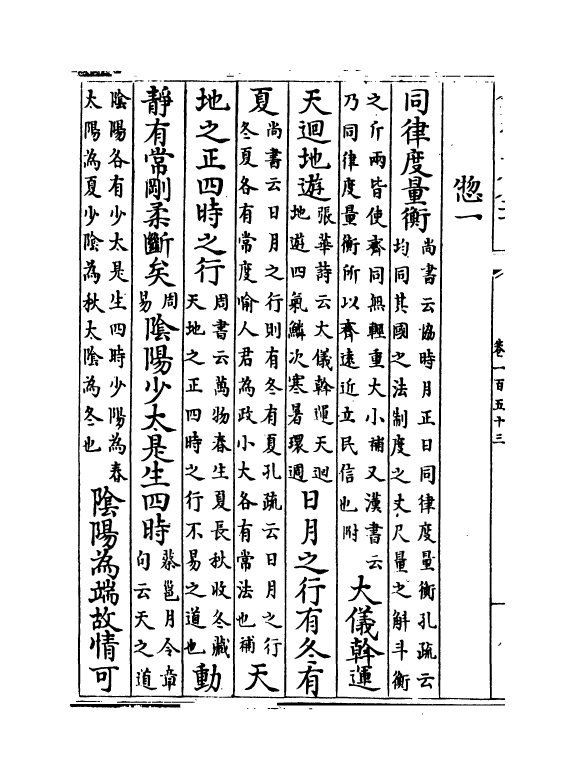 卷一百五十三
惣一
同律度量衡尚書云協時月正日同律度量衡孔疏云
均同其國之法制度之丈尺量之斛斗衡
之斤兩皆使齊同無輕重大小補又漢書云
乃同律度量衡所以齊遠近立民信也附大儀斡運
天迴地遊張華詩云大儀斡運天迴
地遊四氣鱗次寒暑環週日月之行有冬有
夏尚書云日月之行則有冬有夏孔疏云日月之行
冬夏各有常度喻人君為政小大各有常法也補天
地之正四時之行周書云萬物春生夏長秋收冬藏
天地之正四時之行不易之道也動
靜有常剛柔斷矣周易陰陽少太是生四時蔡邕月令章
句云天之道
陰陽各有少太是生四時少陽為春
太陽為夏少陰為秋太陰為冬也陰陽為端故情可